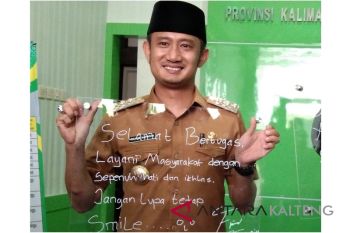 PROVINSI KALIMA
Selamat Bertugas,
Layani Masyarakat dengan
Sepenuh Hati dan ikhlas.
Jangan Lupa tetap
Smile.....
ANTARA KALTENG